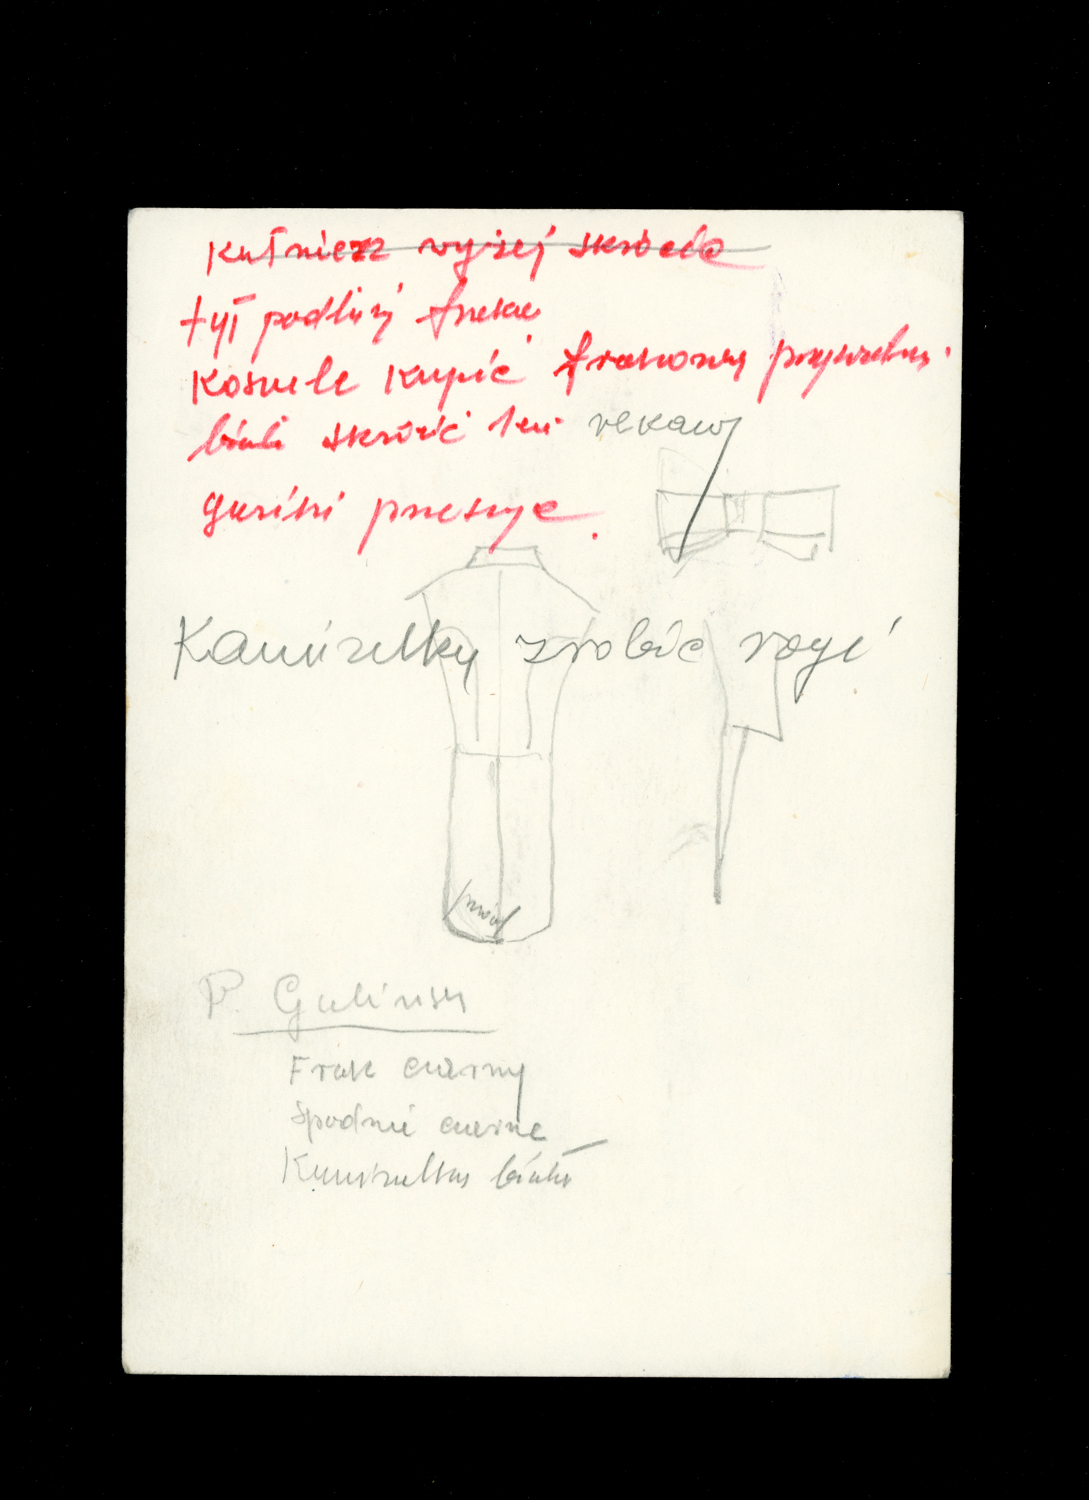 Kołnierz wyżej skrócić
tył podłuż fraka
Koszule kupić frakową
białą skrócić 1 cm rękaw
guziki przeszyć.
Kamizelkę zrobić
przód
P. Guliński
Frak czarny
Spodnie czarne
Kamizelka biała